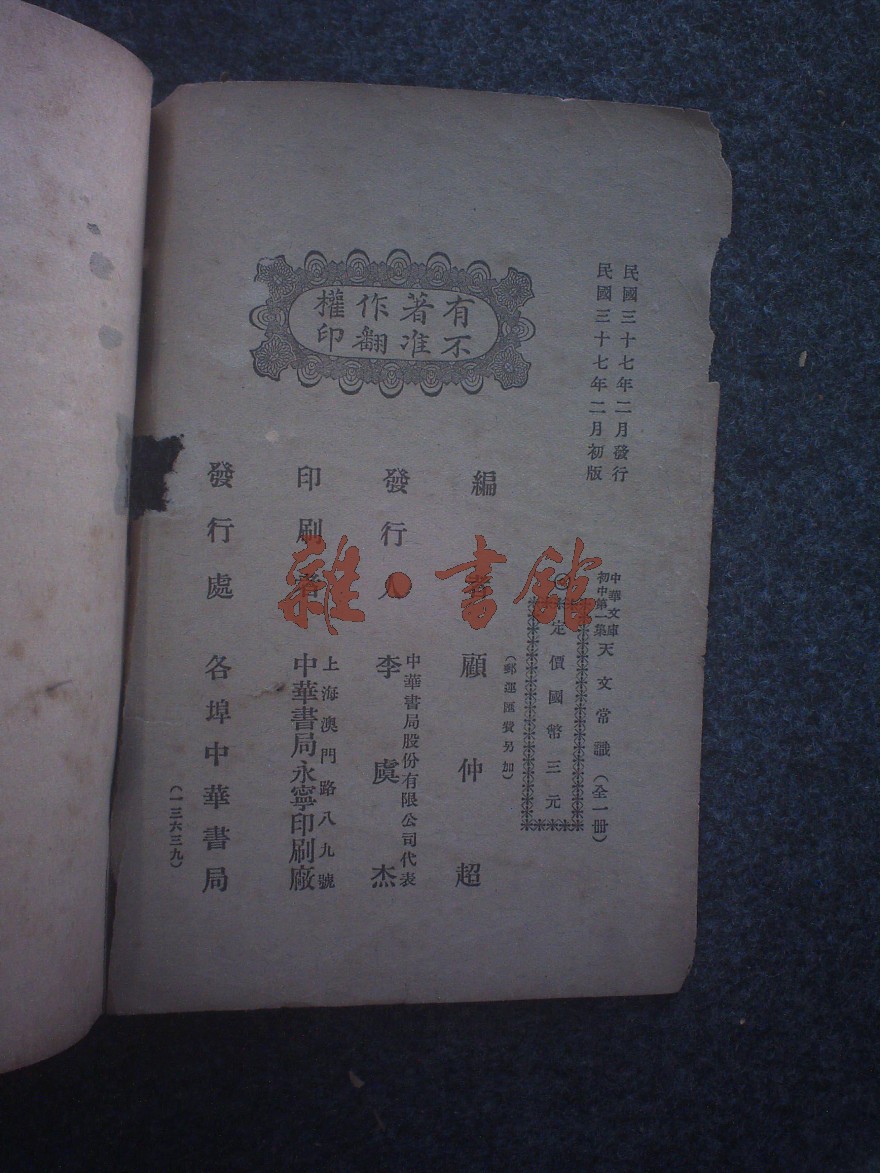 民國三十七年二月發行
民國三十七年二月初版
中華文庫
初中第一集
天文常識(全一冊)
定價國幣三元
(郵運匯費另加)
編者 顧仲超
發行人 中華書局股份有限公司代表
李虞杰
印刷者 上海澳門路八九號
中華書局永寧印刷廠
發行處 各埠中華書局
(一三六三九)
有著作權
不准翻印
雜·書館